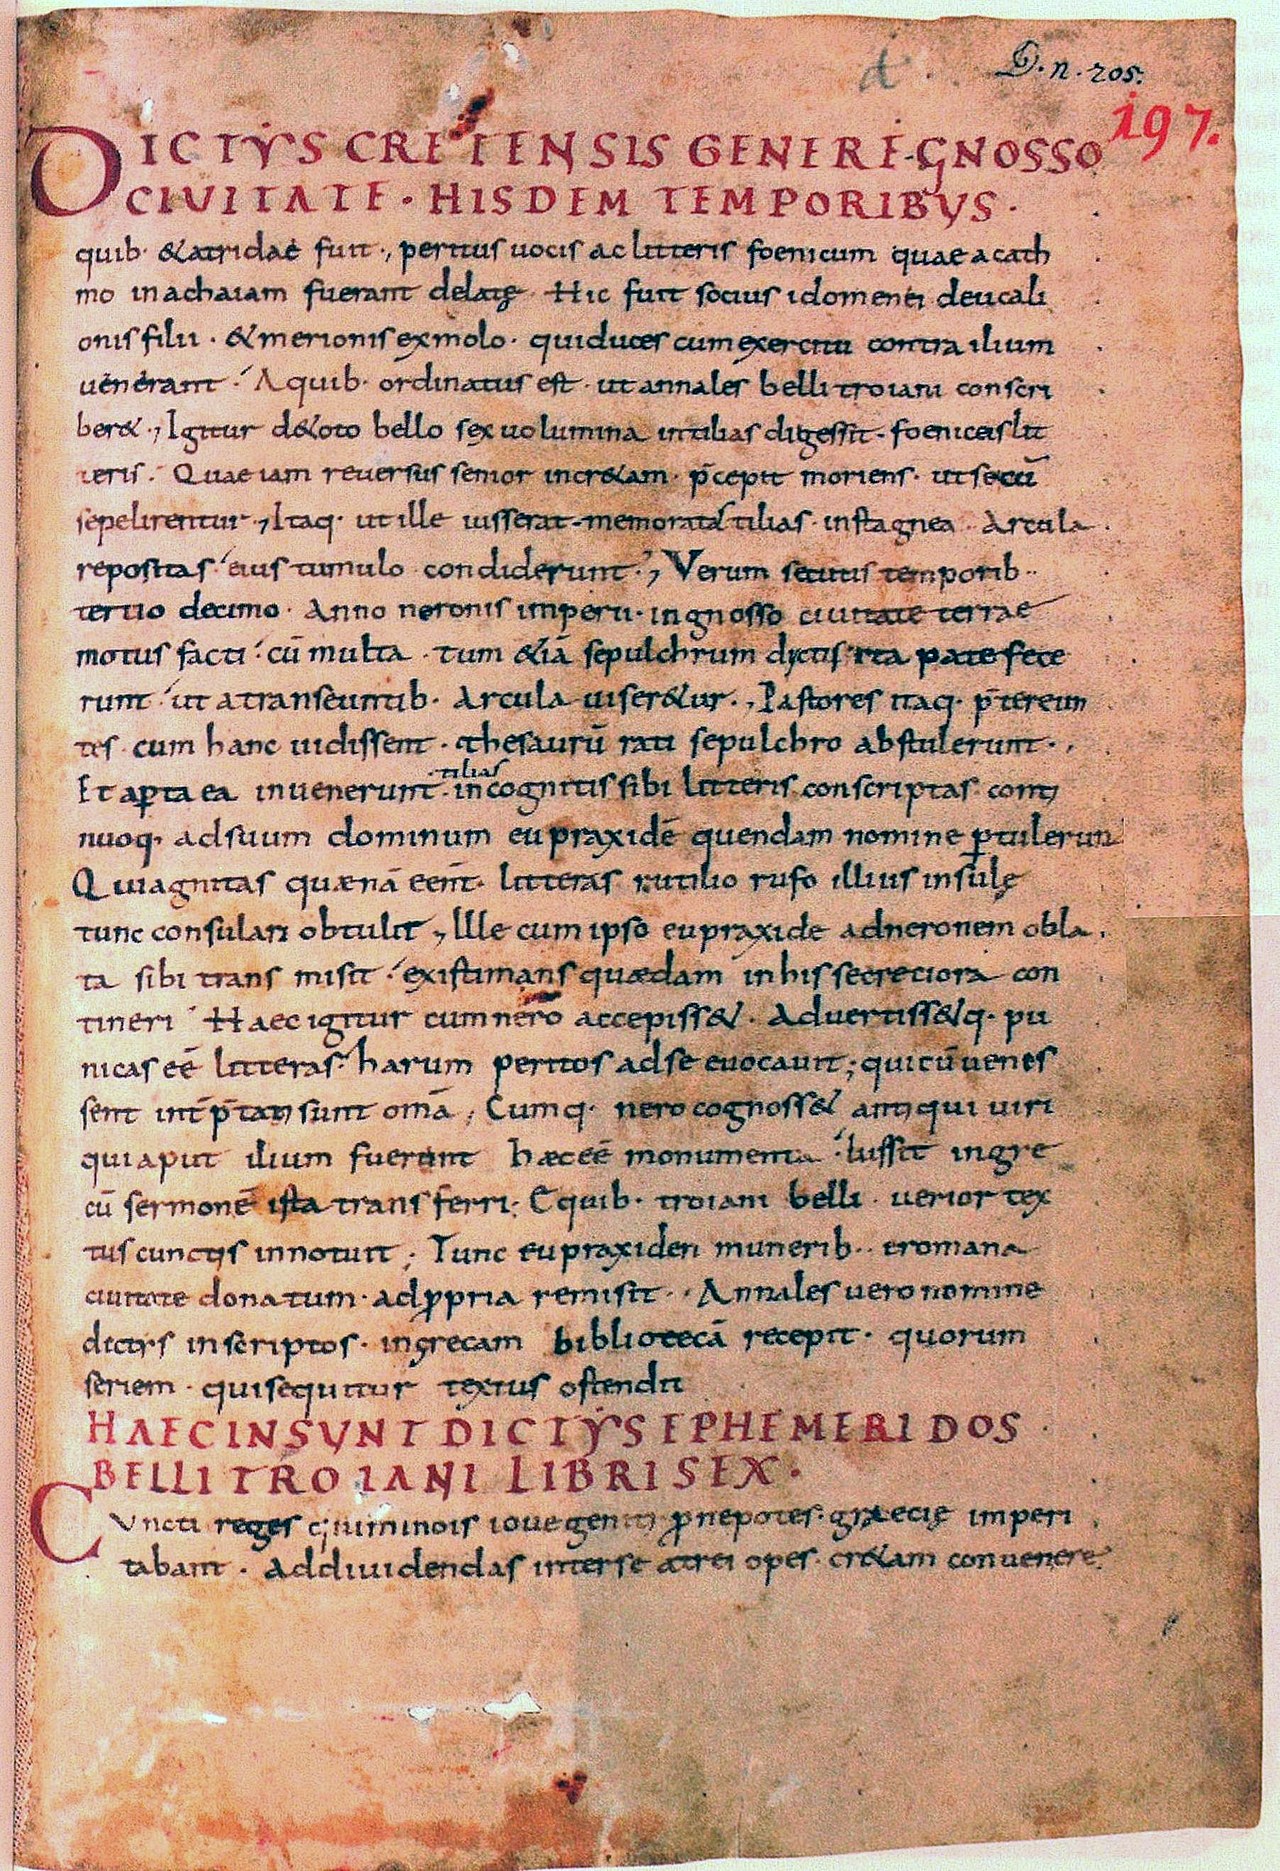 d
D. n. 205.
197.
DICTYS CRETENSIS GENERE GNOSSO
CIVITATE · HISDEM TEMPORIBVS ·
quib· &atridae fuit ·, peritus uocis ac litteris foenicum quae a cath
mo in achaiam fuerant delatę · Hic fuit socius idomenei deucali
onis filii · & merionis ex molo · qui duces cum exercitu contra ilium
uenerant · A quib· ordinatus est · ut annales belli troiani conscri
ber& ·, Igitur de toto bello sex uolumina in tilias digessit · foeniceis lit
teris · Quae iam reuersus senior in cr&am · p̄cepit moriens · ut secū
sepelirentur ·, Itaq· ut ille iusserat memoratas tilias · in stagnea · Arcula
repositas eius tumulo condiderunt ·, Verum secutis temporib··
tertio decimo · Anno neronis imperii · in gnosso ciuitate terrae
motus facti · cū multa · tum &iā sepulchrum dyctis ita patefece
runt · ut a transeuntib· Arcula uiser&ur ·, Pastores itaq· p̄tereun
tes · cum hanc uidissent · thesaurū rati sepulchro abstulerunt ·,
·tilias
Et aꝑta ea inuenerunt · incognitis sibi litteris conscriptas conti
nuoq· ad suum dominum eupraxidē quendam nomine ꝑtulerun
Qui agnitas quænā eēnt · litteras rutilio rufo illius insulę
tunc consulari obtulit ·, Ille cum ipso eupraxide ad neronem obla
ta sibi trans misit · existimans quædam in his secreciora con
tineri · Haec igitur cum nero accepiss& · Aduertiss&q· pu
nicas eē litteras · harum peritos ad se euocauit ; qui cū uenes
sent int̄p̄tati sunt omā ; Cumq· nero cognoss& antiqui uiri
qui aput ilium fuerant hæc eē monumenta · Iussit in gre
cū sermonē ista transferri ; E quib· troiani belli · uerior tex
tus cunctis innotuit ; Tunc eupraxiden munerib·· e romana
ciuitate donatum · ad ꝓpria remisit · Annales uero nomine
dictys inscriptos · in grecam bibliotecā recepit · quorum
seriem · qui sequitur textus ostendit
HAEC INSVNT DICTYS EPHEMERIDOS
BELLI TROIANI LIBRI SEX ·
Cuncti reges qui minois ioue geniti ꝓnepotes · græcię imperi
tabant · Ad diuidendas inter se atrei opes · cr&am conuenere